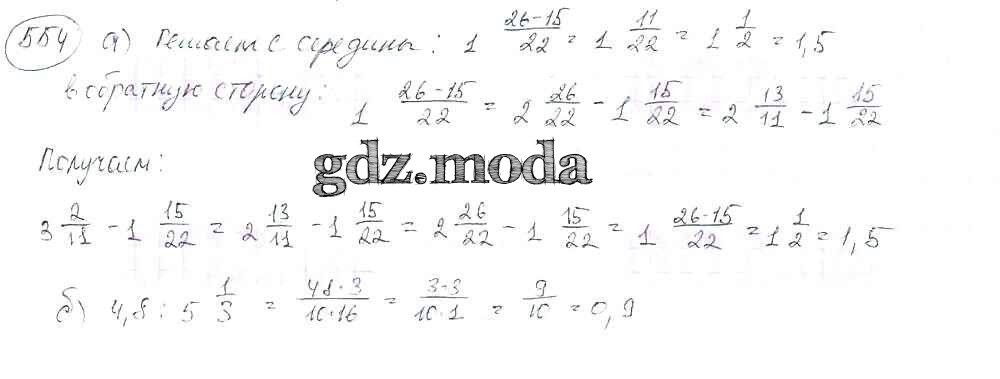 554 а) Решаем с середины: 1 26-15/22 = 1 11/22 = 1 1/2 = 1,5
в обратную сторону: 1 26-15/22 = 2 26/22 - 1 15/22 = 2 13/11 - 1 15/22
Получаем:
gdz.moda
3 2/11 - 1 15/22 = 2 13/11 - 1 15/22 = 2 26/22 - 1 15/22 = 1 26-15/22 = 1 1/2 = 1,5
б) 4,8 : 5 1/3 = 48·3/10·16 = 3·3/10·1 = 9/10 = 0,9